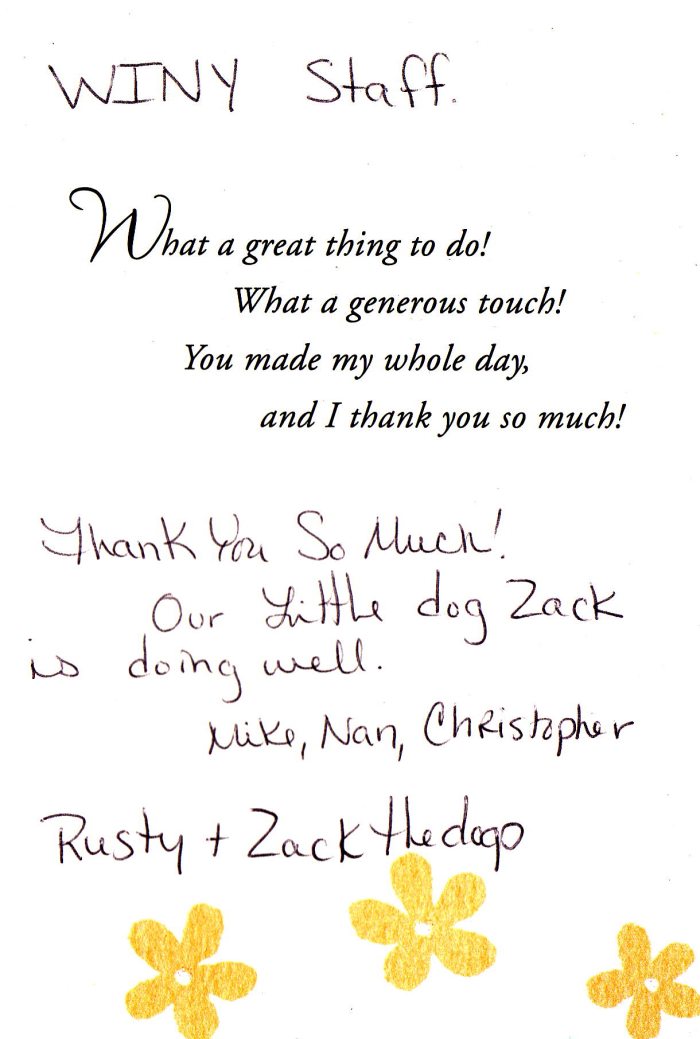 WINY Staff.
What a great thing to do!
What a generous touch!
You made my whole day,
and I thank you so much!
Thank You So Much!
Our Little dog Zack
is doing well.
Mike, Nan, Christopher
Rusty + Zack the dogs